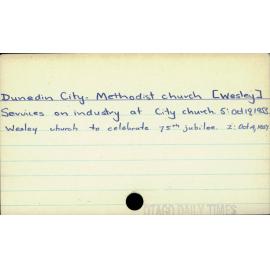 Dunedin City. Methodist church [Wesley]
Services on industry at City church. 5: Oct 19, 1953
Wesley church to celebrate 75th jubilee. 2: Oct 9,
OTAGO DAILY TIMES